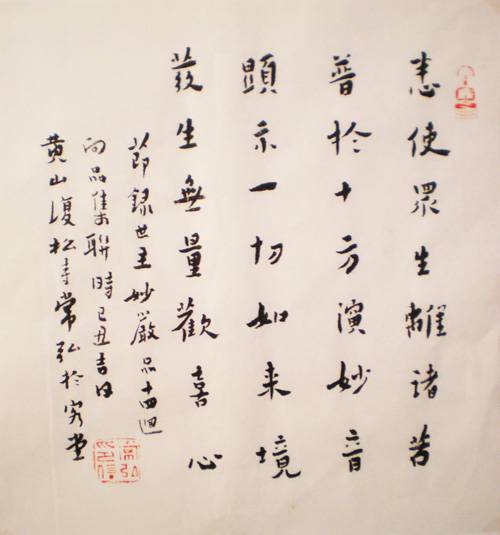 悉使眾生離諸苦
普於十方演妙音
顯示一切如来境
發生無量歡喜心
節録世主妙嚴品十四迴
向品集聯時己丑吉日
黄山復松寺常弘於客堂
常弘